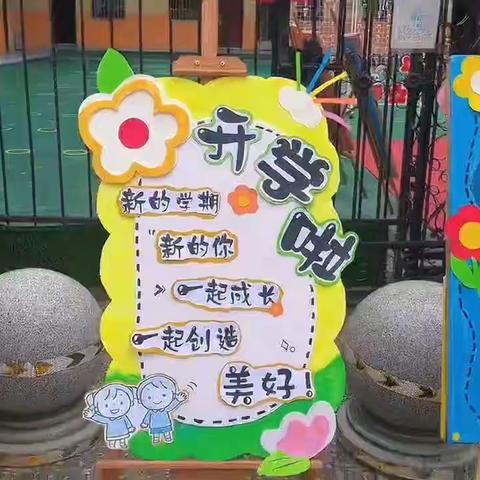 开学
新的学期
新的你
一起成长
一起创造
美好！